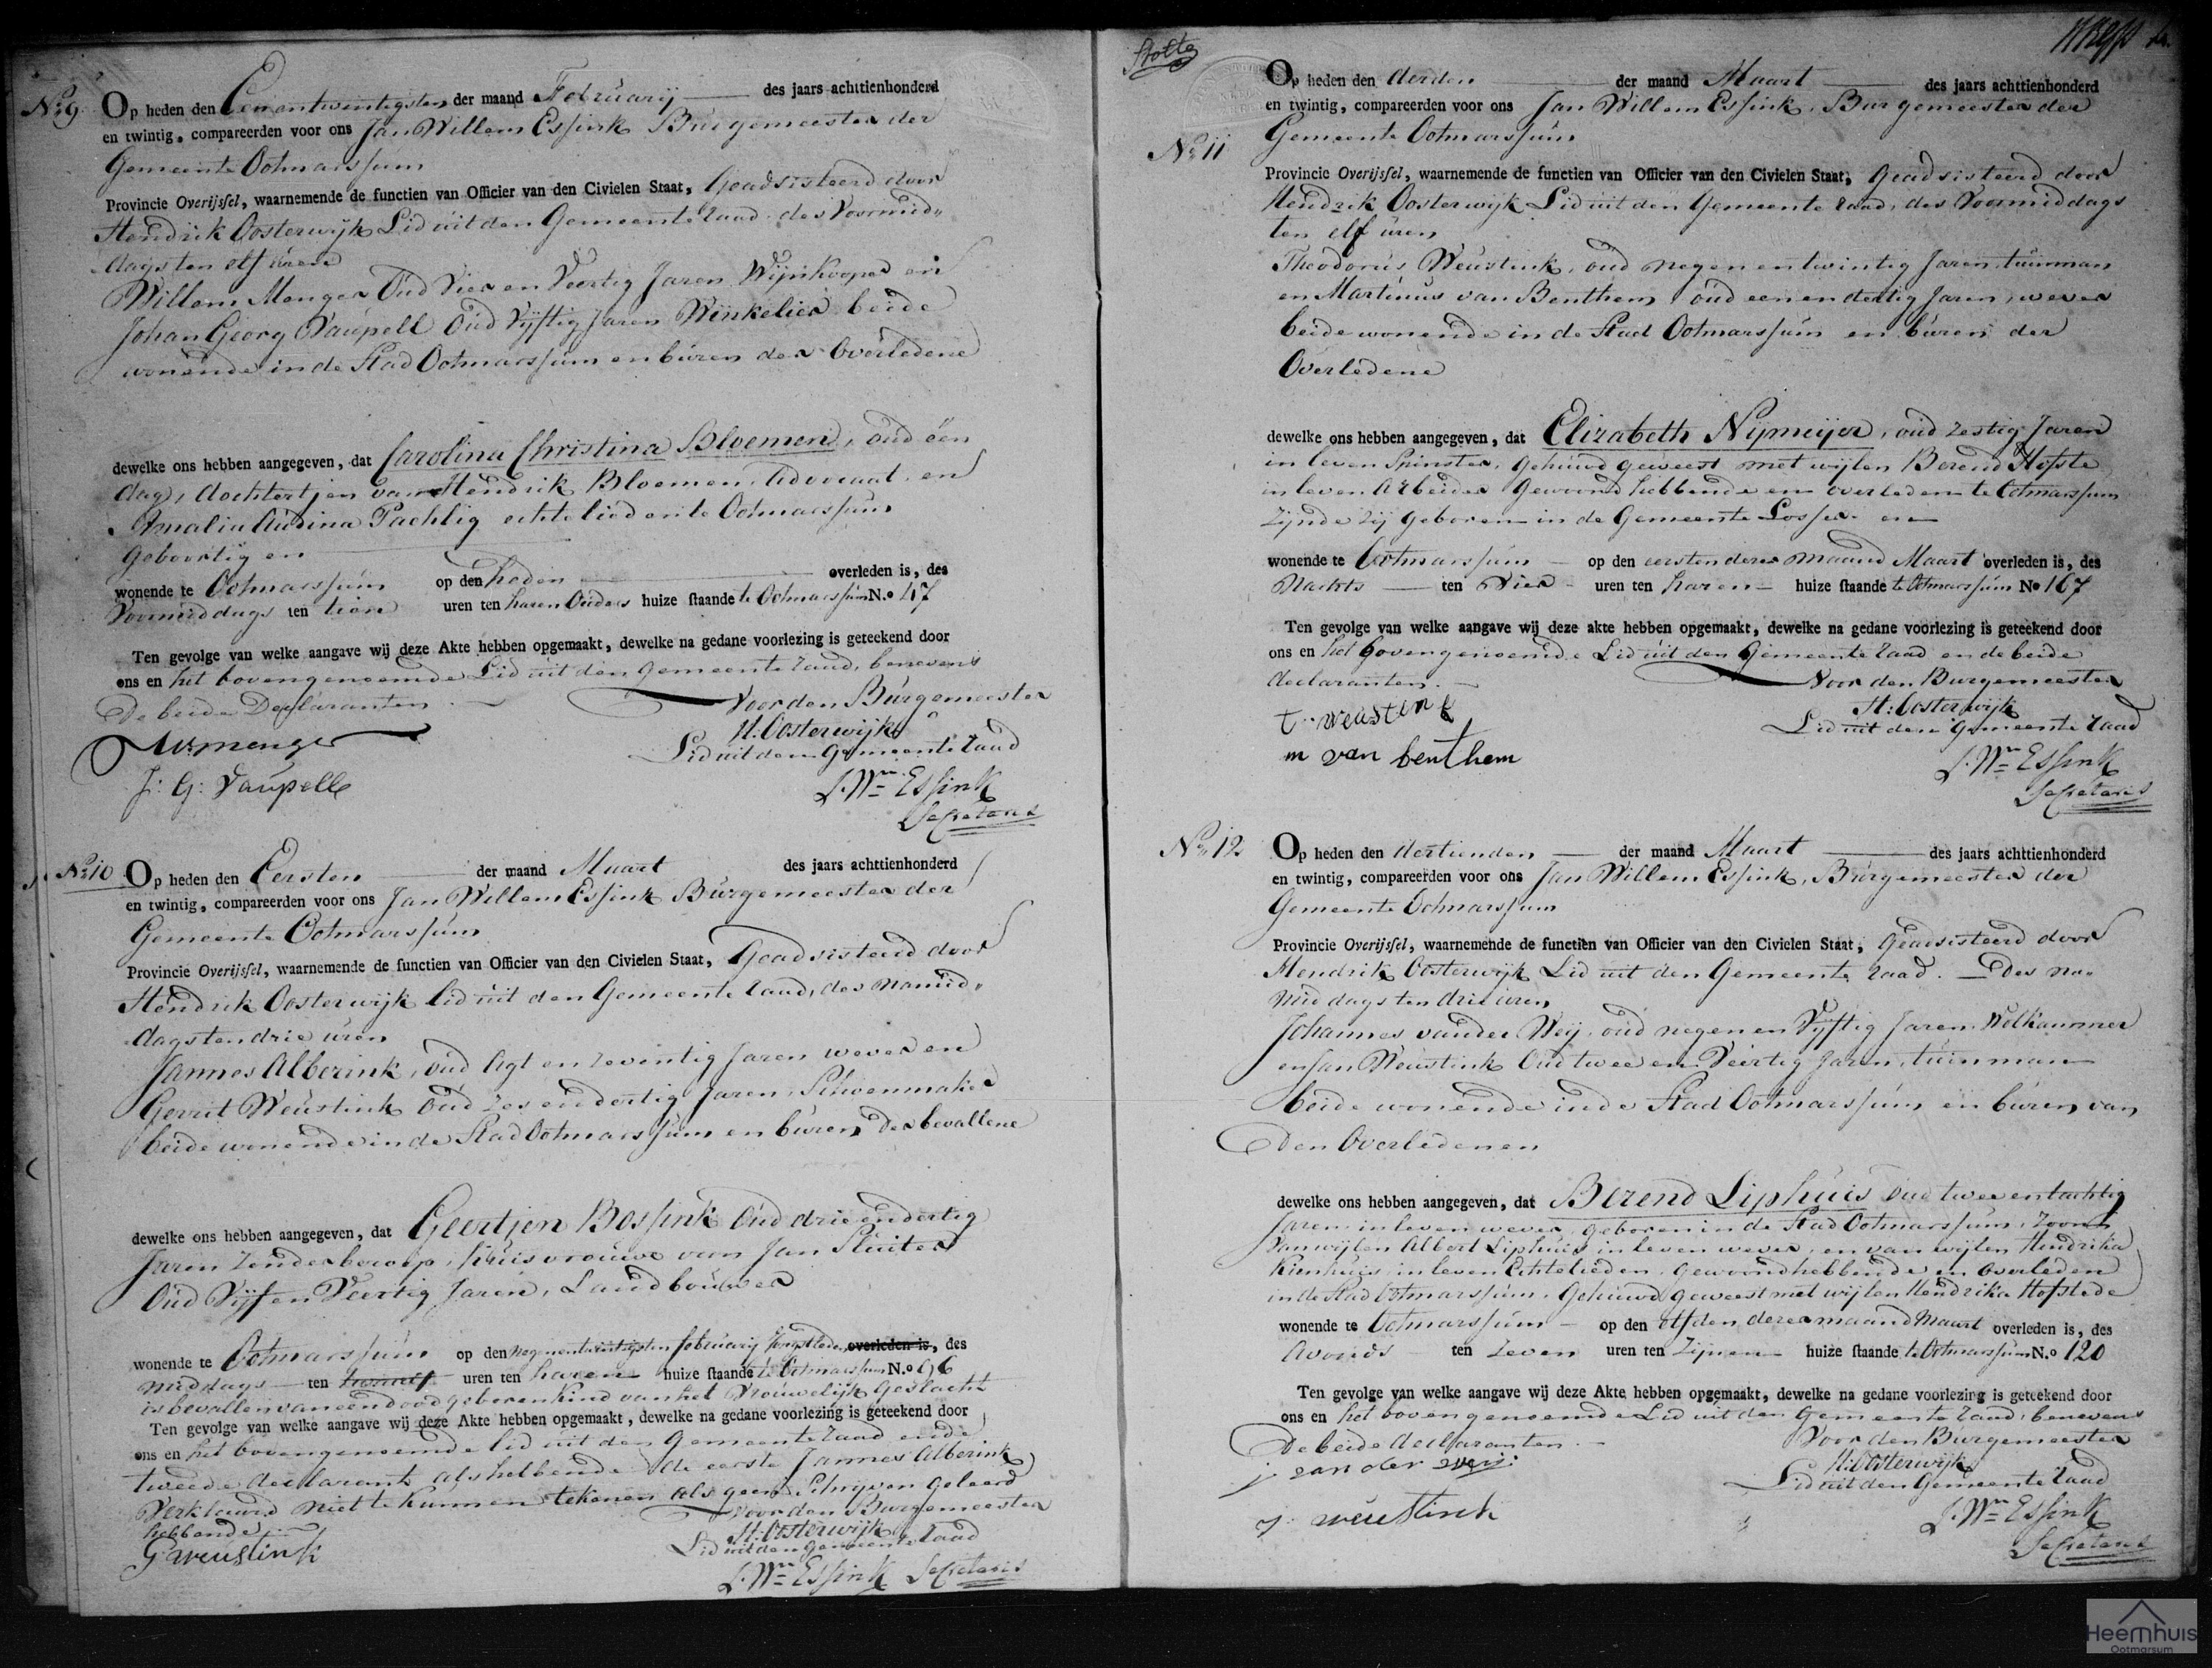 No 9. Op heden den Eenentwintigsten der maand Februarij des jaars achttienhonderd
en twintig, compareerden voor ons Jan Willem Essink Burgemeester der
Gemeente Ootmarssum
Provincie Overijssel, waarnemende de functien van Officier van den Civielen Staat, Geadsisteerd door
Hendrik Oosterwijk Lid uit den Gemeente raad des Voormid„
dags ten elf uren
Willem Menger Oud Vier en Veertig Jaren Wijnkooper en
Johan Georg Vaupell Oud Vijftig Jaren Winkelier beide
wonende in de Stad Ootmarssum en buren der Overledene
dewelke ons hebben aangegeven, dat Carolina Christina Bloemen, oud één
dag, dochtertjen van Hendrik Bloemen Advocaat en
Amalia Pachlig echtelieden te Ootmarssum
Geboortig en
wonende te Ootmarssum op den heden overleden is, des
Voormiddags ten tien uren ten haren Ouders huize staande te Ootmarssum N.o
Ten gevolge van welke aangave wij deze Akte hebben opgemaakt, dewelke na gedane voorlezing is geteekend door
ons en het bovengenoemde Lid uit den Gemeente raad, benevens
De beide Declaranten.
Voor den Burgemeester
H: Oosterwijk
Lid uit den Gemeente raad
Wmenger
J: G: Vaupell
J. Wm Essink
Secretaris
No 10 Op heden den Eersten der maand Maart des jaars achttienhonderd
en twintig, compareerden voor ons Jan Willem Essink Burgemeester der
Gemeente Ootmarssum
Provincie Overijssel, waarnemende de functien van Officier van den Civielen Staat, Geadsisteerd door
Hendrik Oosterwijk Lid uit den Gemeente raad, des Namid„
dags ten drie uren
Jannes Alberink, oud Agt en zeventig Jaren wever en
Gerrit Weustink Oud Zes en dertig Jaren, Schoenmaker
beide wonende in de Stad Ootmarssum en buren der bevallene
dewelke ons hebben aangegeven, dat Geertjen Bossink Oud drie en dertig
Jaren zonder beroep, huisvrouwe van Jan Sluiter
Oud Vijf en Veertig Jaren, Landbouwer
wonende te Ootmarssum op den negenentwintigsten februarij jongstleden overleden is, des
middags ten twaalf uren ten haren huize staande te Ootmarssum N.o
is bevallen van een dood geboren kind van het Vrouwelijk Geslacht
Ten gevolge van welke aangave wij deze Akte hebben opgemaakt, dewelke na gedane voorlezing is geteekend door
ons en het bovengenoemde lid uit den Gemeente raad en de
tweede declarant, als hebbende de eerste Jannes Alberink
Verklaard niet te kunnen tekenen als geen Schrijven Geleerd
hebbende
Voor den Burgemeester
H: Oosterwijk
Lid uit den Gemeente raad
G weustink
J. Wm Essink Secretaris
Stolte
No 11
Op heden den derden der maand Maart des jaars achttienhonderd
en twintig, compareerden voor ons Jan Willem Essink, Burgemeester der
Gemeente Ootmarssum
Provincie Overijssel, waarnemende de functien van Officier van den Civielen Staat, Geadsisteerd door
Hendrik Oosterwijk Lid uit den Gemeente raad, des Voormiddags
ten elf uren
Theodorus Weustink, oud negen en twintig Jaren, tuinman
en Martinus van Benthem oud een en dertig Jaren, wever
beide wonende in de Stad Ootmarssum en buren der
Overledene
dewelke ons hebben aangegeven, dat Elizabeth Nijmeijer, oud Zestig Jaren
in leven Spinster, Gehuwd geweest met wijlen Berend Hofste
in leven Arbeider Gewoond hebbende en overleden te Ootmarssum
Zijnde zij geboren in de Gemeente Losser en
wonende te Ootmarssum op den eersten dezer maand Maart overleden is, des
Nachts ten Vier uren ten haren huize staande te Ootmarssum No 167
Ten gevolge van welke aangave wij deze akte hebben opgemaakt, dewelke na gedane voorlezing is geteekend door
ons en het bovengenoemde Lid uit den Gemeente raad en de beide
declaranten.
Voor den Burgemeester
H: Oosterwijk
Lid uit den Gemeente raad
t weustink
m van benthem
J. Wm Essink
Secretaris
No 12 Op heden den dertienden der maand Maart des jaars achttienhonderd
en twintig, compareerden voor ons Jan Willem Essink, Burgemeester der
Gemeente Ootmarssum
Provincie Overijssel, waarnemende de functien van Officier van den Civielen Staat, Geadsisteerd door
Hendrik Oosterwijk Lid uit den Gemeente raad. Des na„
middags ten drie uren
Johannes van der Weij, oud negen en Vijftig Jaren Wolkammer
en Jan Weustink Oud twee en Veertig Jaren, tuinman
beide wonende in de Stad Ootmarssum en buren van
Den Overledenen
dewelke ons hebben aangegeven, dat Berend Liphuis oud twee en tachtig
Jaren in leven wever, geboren in de Stad Ootmarssum, Zoon
van wijlen Albert Liphuis in leven wever, en van wijlen Hendrika
Kienhuis in leven Echtelieden, gewoond hebbende en Overleden
in de Stad Ootmarssum, Gehuwd geweest met wijlen Hendrika Hofstede
wonende te Ootmarssum op den elfden dezer maand Maart overleden is, des
Avonds ten Zeven uren ten Zijnen huize staande te Ootmarssum N.o 120
Ten gevolge van welke aangave wij deze Akte hebben opgemaakt, dewelke na gedane voorlezing is geteekend door
ons en het bovengenoemde Lid uit den Gemeente raad, benevens
De beide declaranten.
Voor den Burgemeester
H: Oosterwijk
Lid uit den Gemeente raad
j van der weij
J weustink
J. Wm Essink
Secretaris
Heemhuis
Ootmarsum